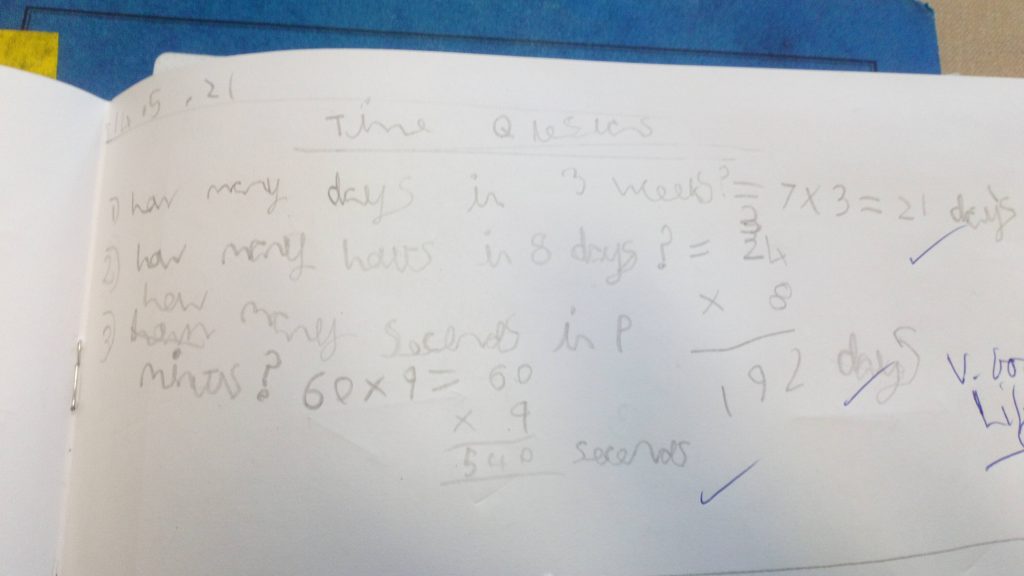 .5 .21
Time Quesions
1) how many days in 3 weeks? = 7 x 3 = 21 days
2) how many hours in 8 days? = 24
x 8
192 days
3) how many seconds in 9
minits? 60 x 9 = 60
x 9
540 seconds
V. Go